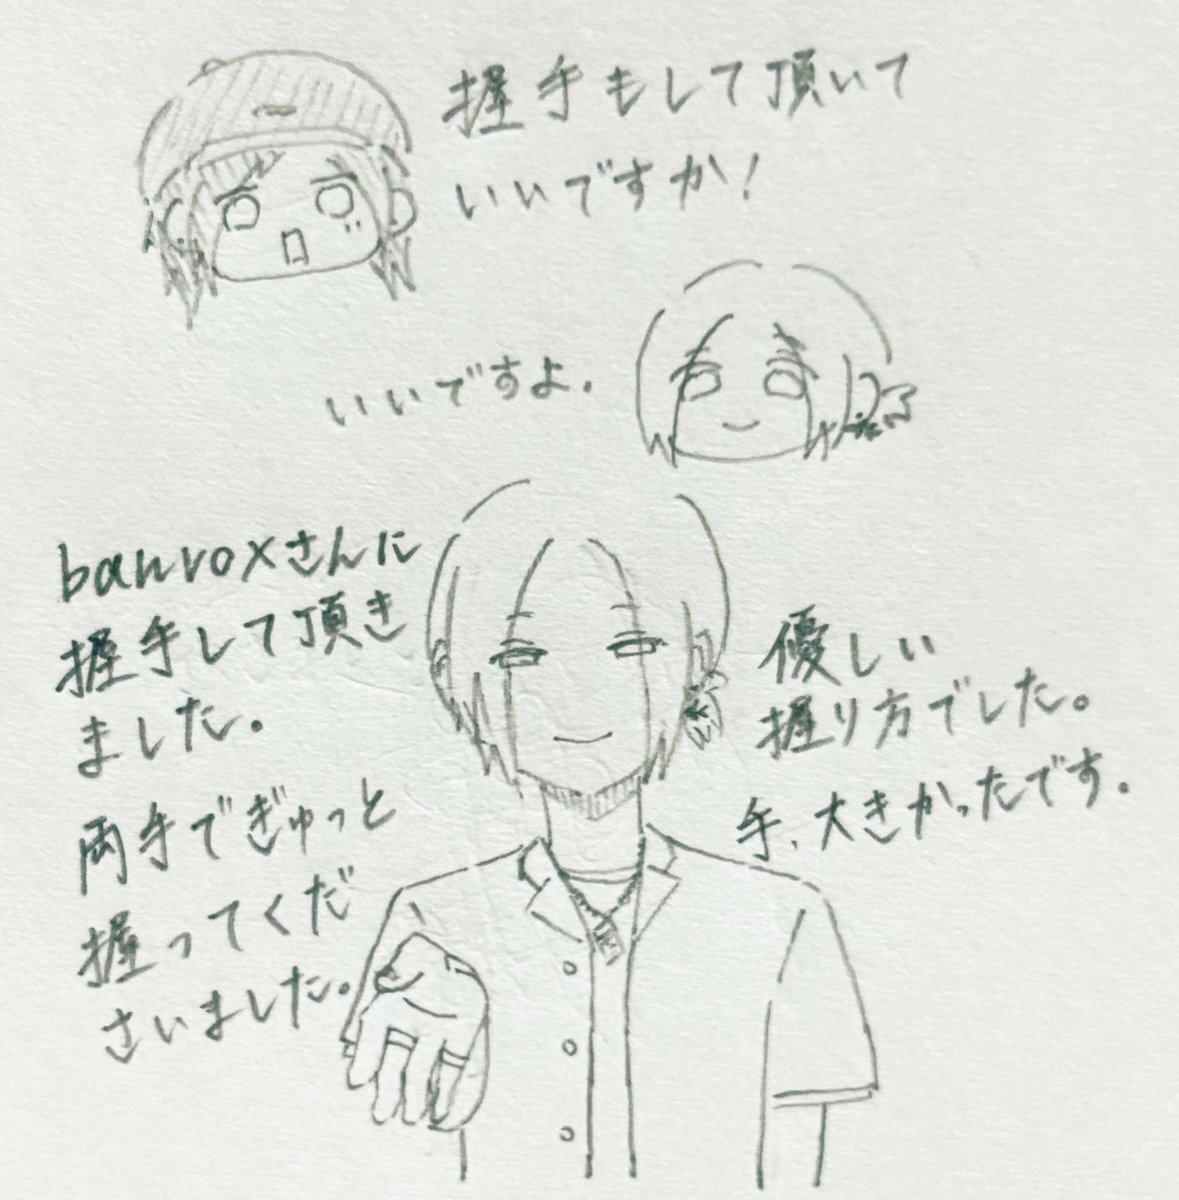 握手もして頂いて
いいですか!
いいですよ.
banroxさんに
握手して頂き
ました。
両手でぎゅっと
握ってくだ
さいました。
優しい
握り方でした。
手、大きかったです。